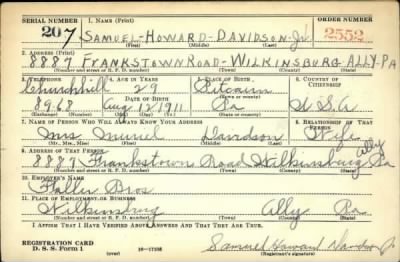 SERIAL NUMBER 1. NAME (Print) ORDER NUMBER
207 SAMUEL-HOWARD-DAVIDSON-Jr. 2552
(First) (Middle) (Last)
2. ADDRESS (Print)
8887 FRANKSTOWN ROAD-WILKINSBURG-ALLY-PA
(Number and street or R. F. D. number) (Town) (County) (State)
3. TELEPHONE 4. AGE IN YEARS 5. PLACE OF BIRTH 6. COUNTRY OF CITIZENSHIP
Churchhill 29 Pitcairn
8968 DATE OF BIRTH Pa U.S.A
Aug 12 1911
(Exchange) (Number) (Mo.) (Day) (Yr.) (State or country)
7. NAME OF PERSON WHO WILL ALWAYS KNOW YOUR ADDRESS 8. RELATIONSHIP OF THAT PERSON
Mrs Muriel Davidson Wife
(Mr., Mrs., Miss) (First) (Middle) (Last)
9. ADDRESS OF THAT PERSON Ally
8887 Frankstown Road Wilkinsburg Pa
(Number and street or R. F. D. number) (Town) (County) (State)
10. EMPLOYER'S NAME
Bros
11. PLACE OF EMPLOYMENT OR BUSINESS
Wilkinsburg Ally Pa
(Number and street or R. F. D. number) (Town) (County) (State)
I AFFIRM THAT I HAVE VERIFIED ABOVE ANSWERS AND THAT THEY ARE TRUE.
REGISTRATION CARD
D. S. S. Form 1 (over) 16—17105 Samuel Howard Davidson Jr
(Registrant's signature)